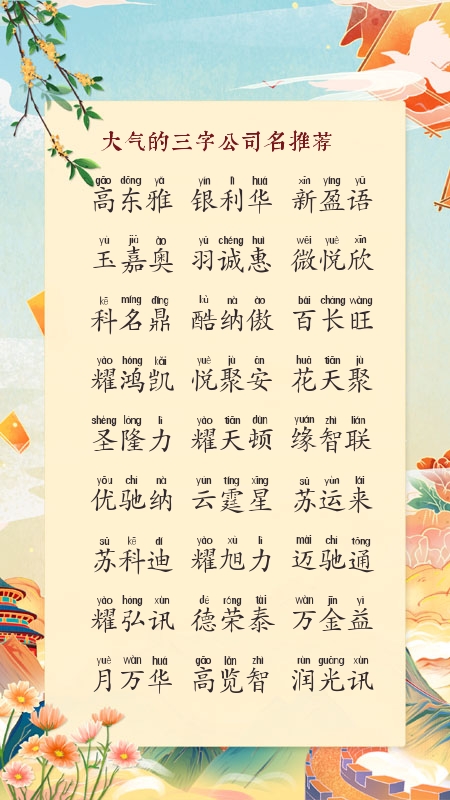 大气的三字公司名推荐
gāo dōng yǎ yín lì huá xīn yíng yǔ
高东雅 银利华 新盈语
yù jiā ào yǔ chéng huì wēi yuè xīn
玉嘉奥 羽诚惠 微悦欣
kē míng dǐng kù nà ào bǎi cháng wàng
科名鼎 酷纳傲 百长旺
yào hóng kǎi yuè jù ān huā tiān jù
耀鸿凯 悦聚安 花天聚
shèng lóng lì yào tiān dùn yuán zhì lián
圣隆力 耀天顿 缘智联
yōu chí nà yún tíng xīng sū yùn lái
优驰纳 云霆星 苏运来
sū kē dí yào xù lì mài chí tōng
苏科迪 耀旭力 迈驰通
yào hóng xùn dé róng tài wàn jīn yì
耀弘讯 德荣泰 万金益
yuè wàn huá gāo lǎn zhì rùn guāng xùn
月万华 高览智 润光讯